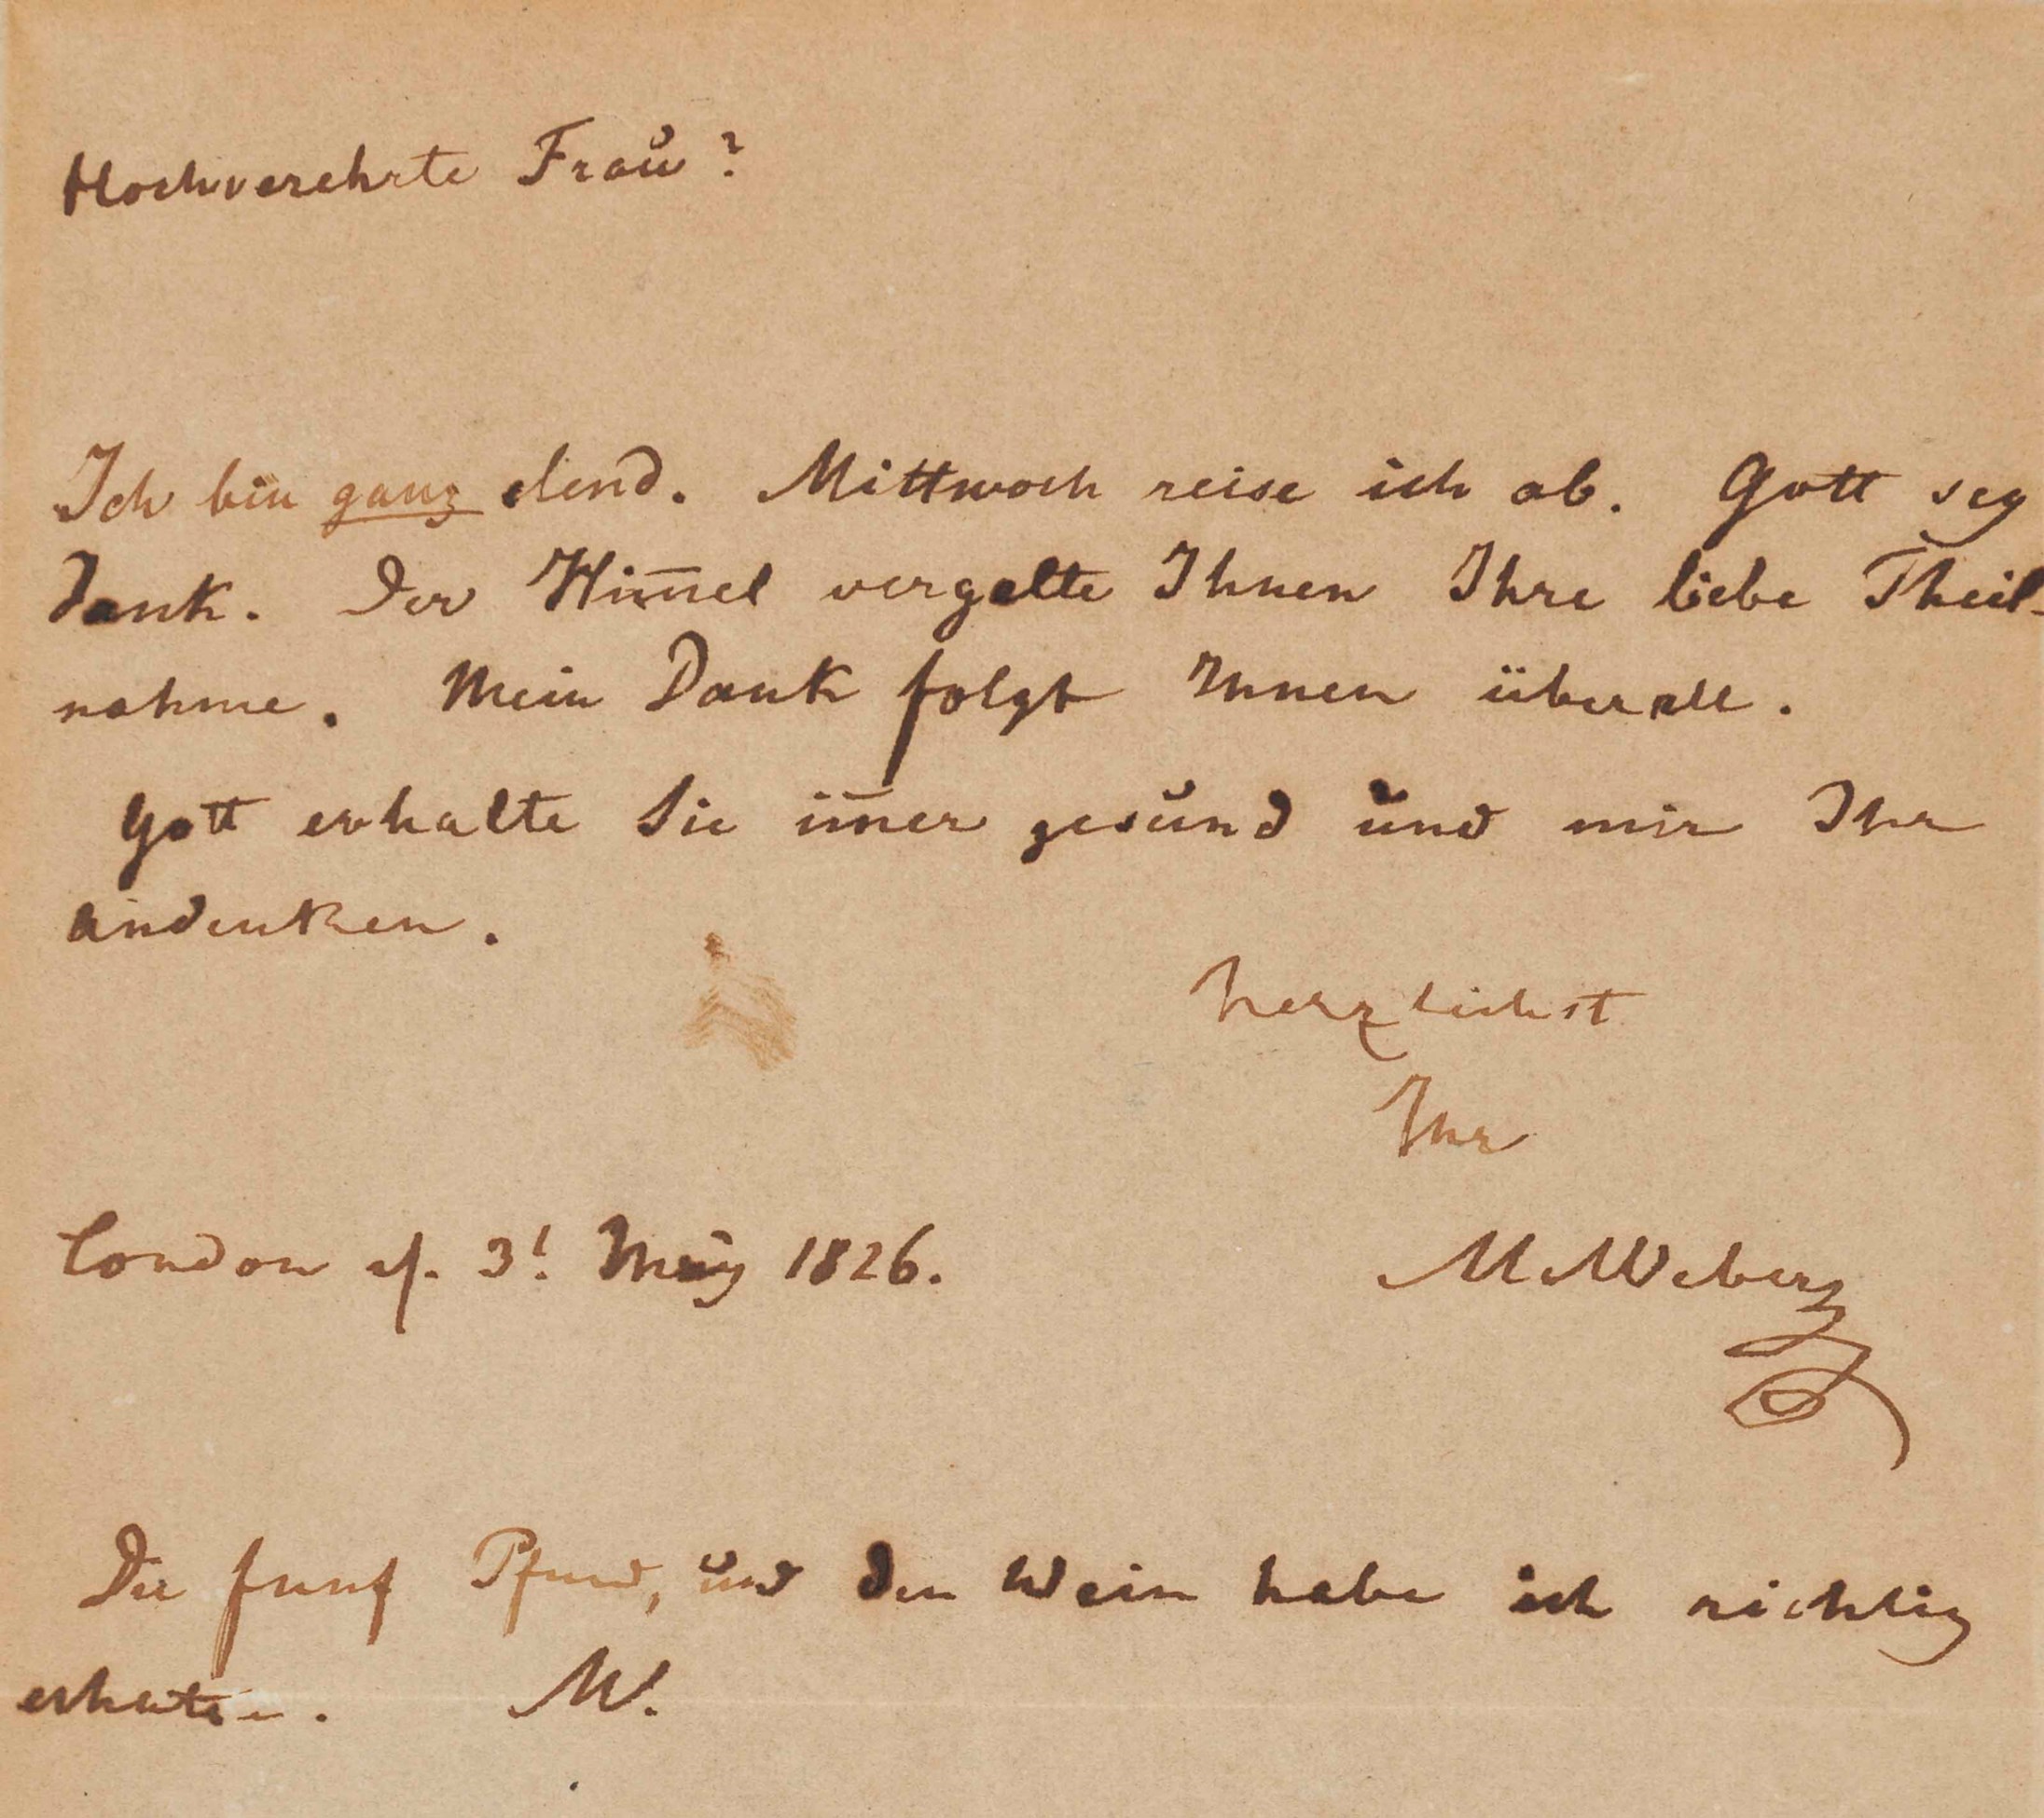 Hochverehrte Frau?
Ich bin ganz elend. Mittwoch reise ich ab. Gott sey
Dank. Der Him̅el vergelte Ihnen Ihre liebe Theil-
nahme. Mein Dank folgt Ihnen überall.
Gott erhalte Sie im̅er gesund und mir Ihr
Andenken.
herzlichst
Ihr
London d. 3! May 1826.
MvWeber
Die funf Pfund, und den Wein habe ich richtig
erhalten. W.